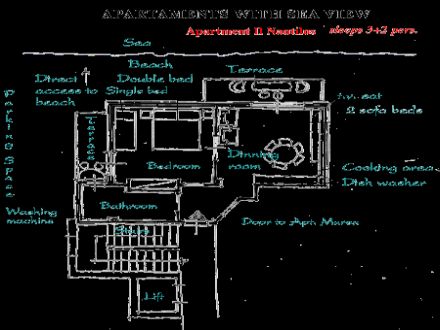 APARTAMENTS WITH SEA VIEW
Apartment II Nautilos sleeps 3+2 pers.
Sea
Beach
Direct access to beach
Double bed
Single bed
Terrace
tv-sat
2 sofa beds
Parking Space
Terrace
Bedroom
Dinning room
Cooking area
Dish washer
Washing machine
Bathroom
Door to Aptm Marea
Stairs
Lift